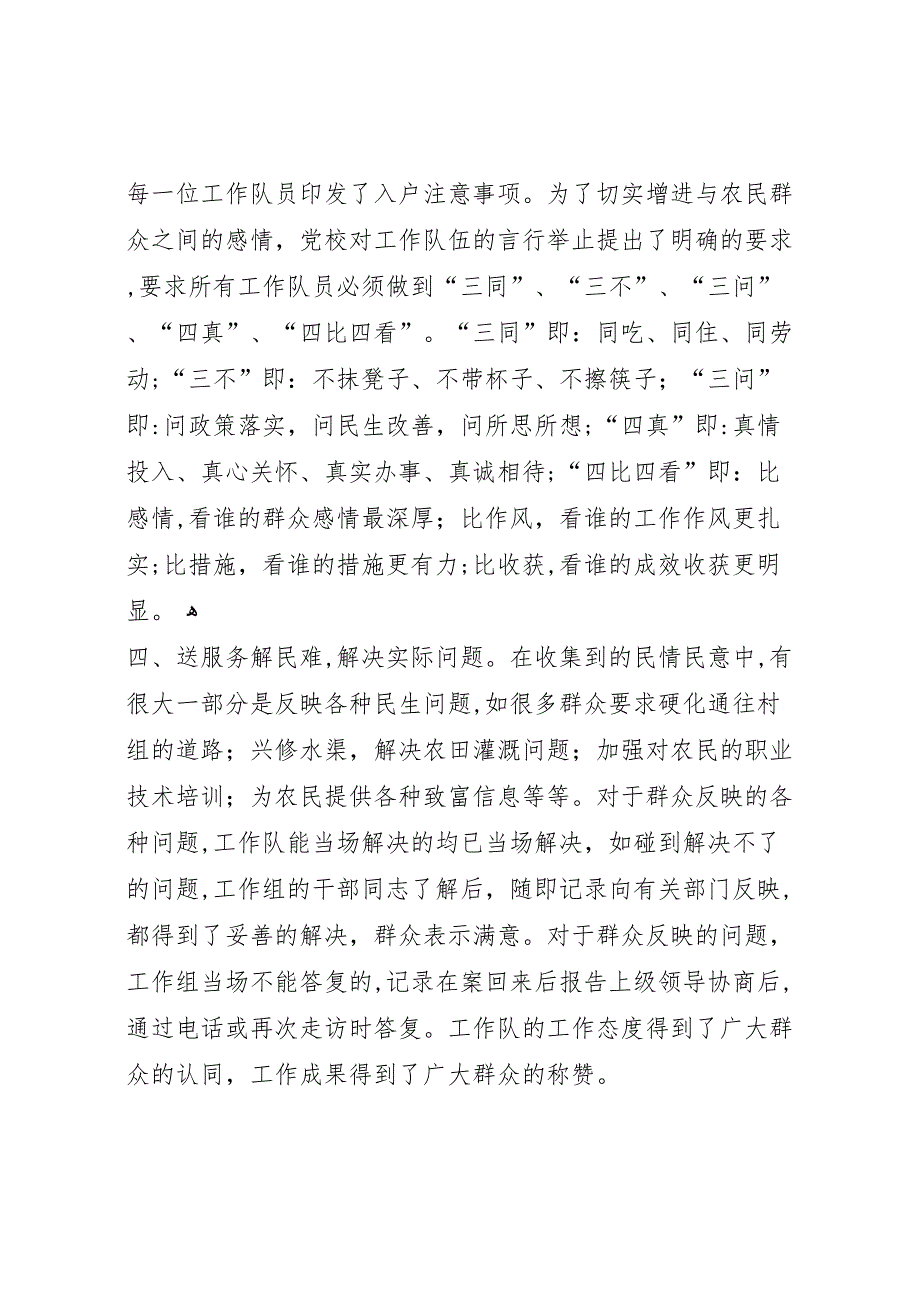 每一位工作队员印发了入户注意事项。为了切实增进与农民群
众之间的感情，党校对工作队伍的言行举止提出了明确的要求
,要求所有工作队员必须做到“三同”、“三不”、“三问”
、“四真”、“四比四看”。“三同”即：同吃、同住、同劳
动;“三不”即：不抹凳子、不带杯子、不擦筷子；“三问”
即:问政策落实，问民生改善，问所思所想;“四真”即:真情
投入、真心关怀、真实办事、真诚相待;“四比四看”即：比
感情,看谁的群众感情最深厚；比作风，看谁的工作作风更扎
实;比措施，看谁的措施更有力;比收获,看谁的成效收获更明
显。 ﻫ
四、送服务解民难,解决实际问题。在收集到的民情民意中,有
很大一部分是反映各种民生问题,如很多群众要求硬化通往村
组的道路；兴修水渠，解决农田灌溉问题；加强对农民的职业
技术培训；为农民提供各种致富信息等等。对于群众反映的各
种问题,工作队能当场解决的均已当场解决，如碰到解决不了
的问题,工作组的干部同志了解后，随即记录向有关部门反映,
都得到了妥善的解决，群众表示满意。对于群众反映的问题，
工作组当场不能答复的,记录在案回来后报告上级领导协商后,
通过电话或再次走访时答复。工作队的工作态度得到了广大群
众的认同，工作成果得到了广大群众的称赞。